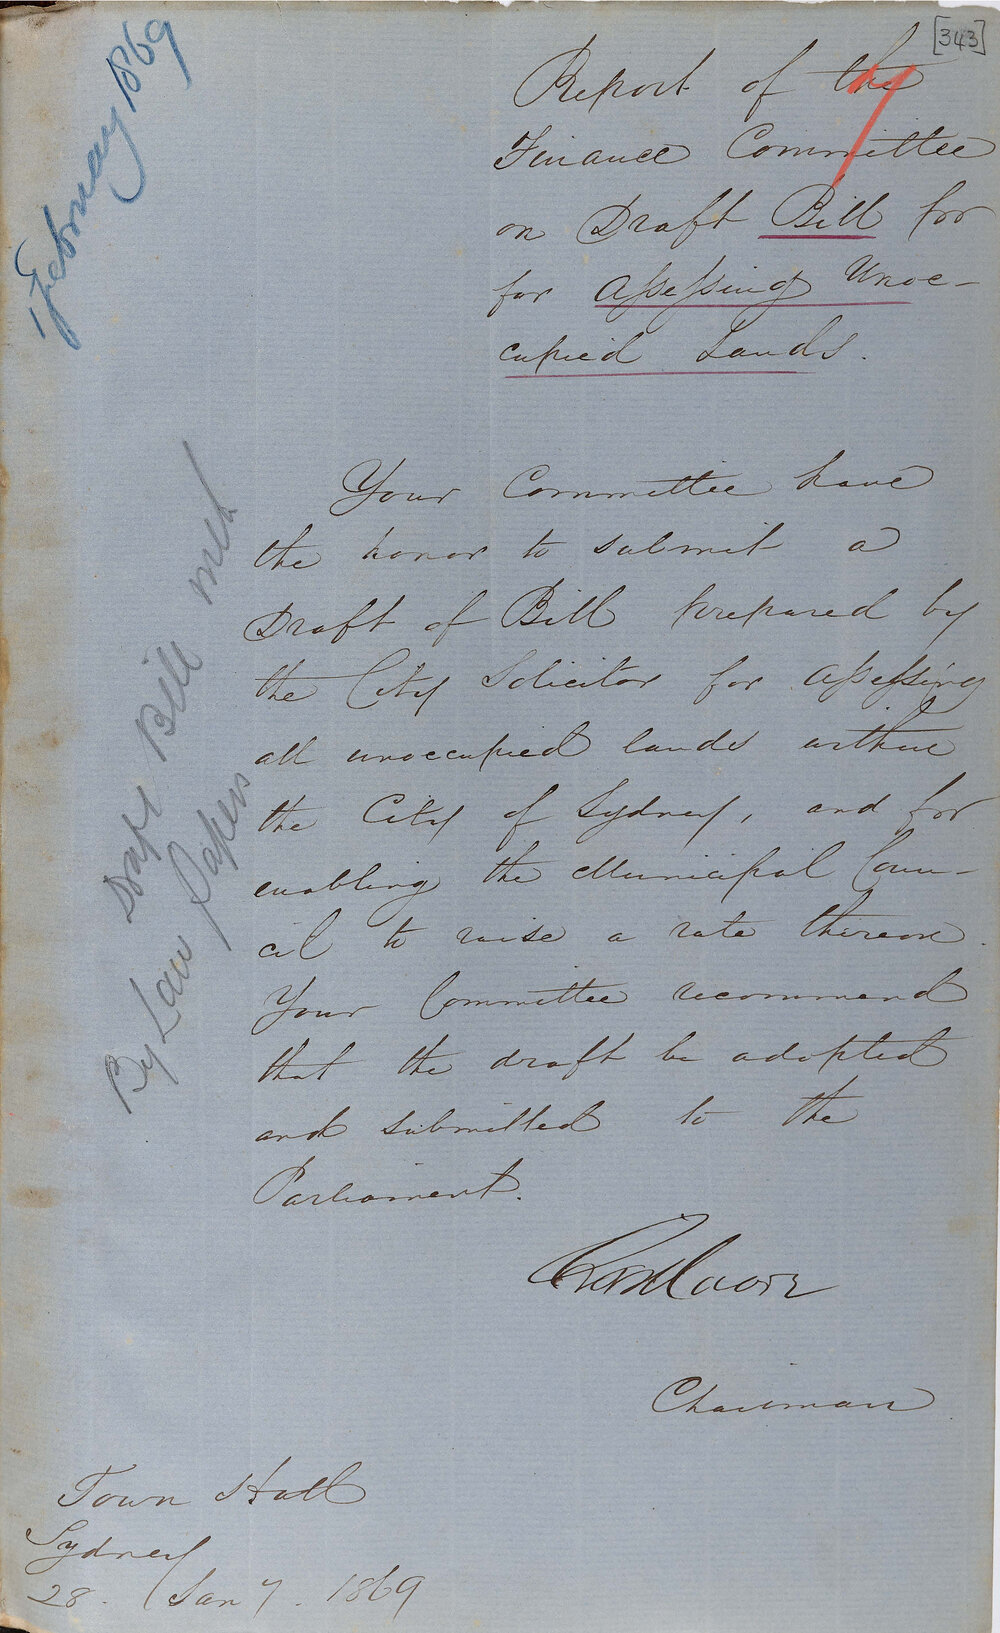 [343]
1 February 1869
7
Report of the
Finance Committee
on Draft Bill for
for Assessing Unoc-
cupied Lands.
Your Committee have
the honor to submit a
Draft of Bill prepared by
the City Solicitor for assessing
all unoccupied lands within
the City of Sydney, and for
enabling the Municipal Coun-
cil to raise a rate thereon.
Your Committee recommend
that the draft be adopted
and submitted to the
Parliament.
Chas Moore
Chairman
Bill with
By Law Papers
Town Hall
Sydney
28. Jany. 1869